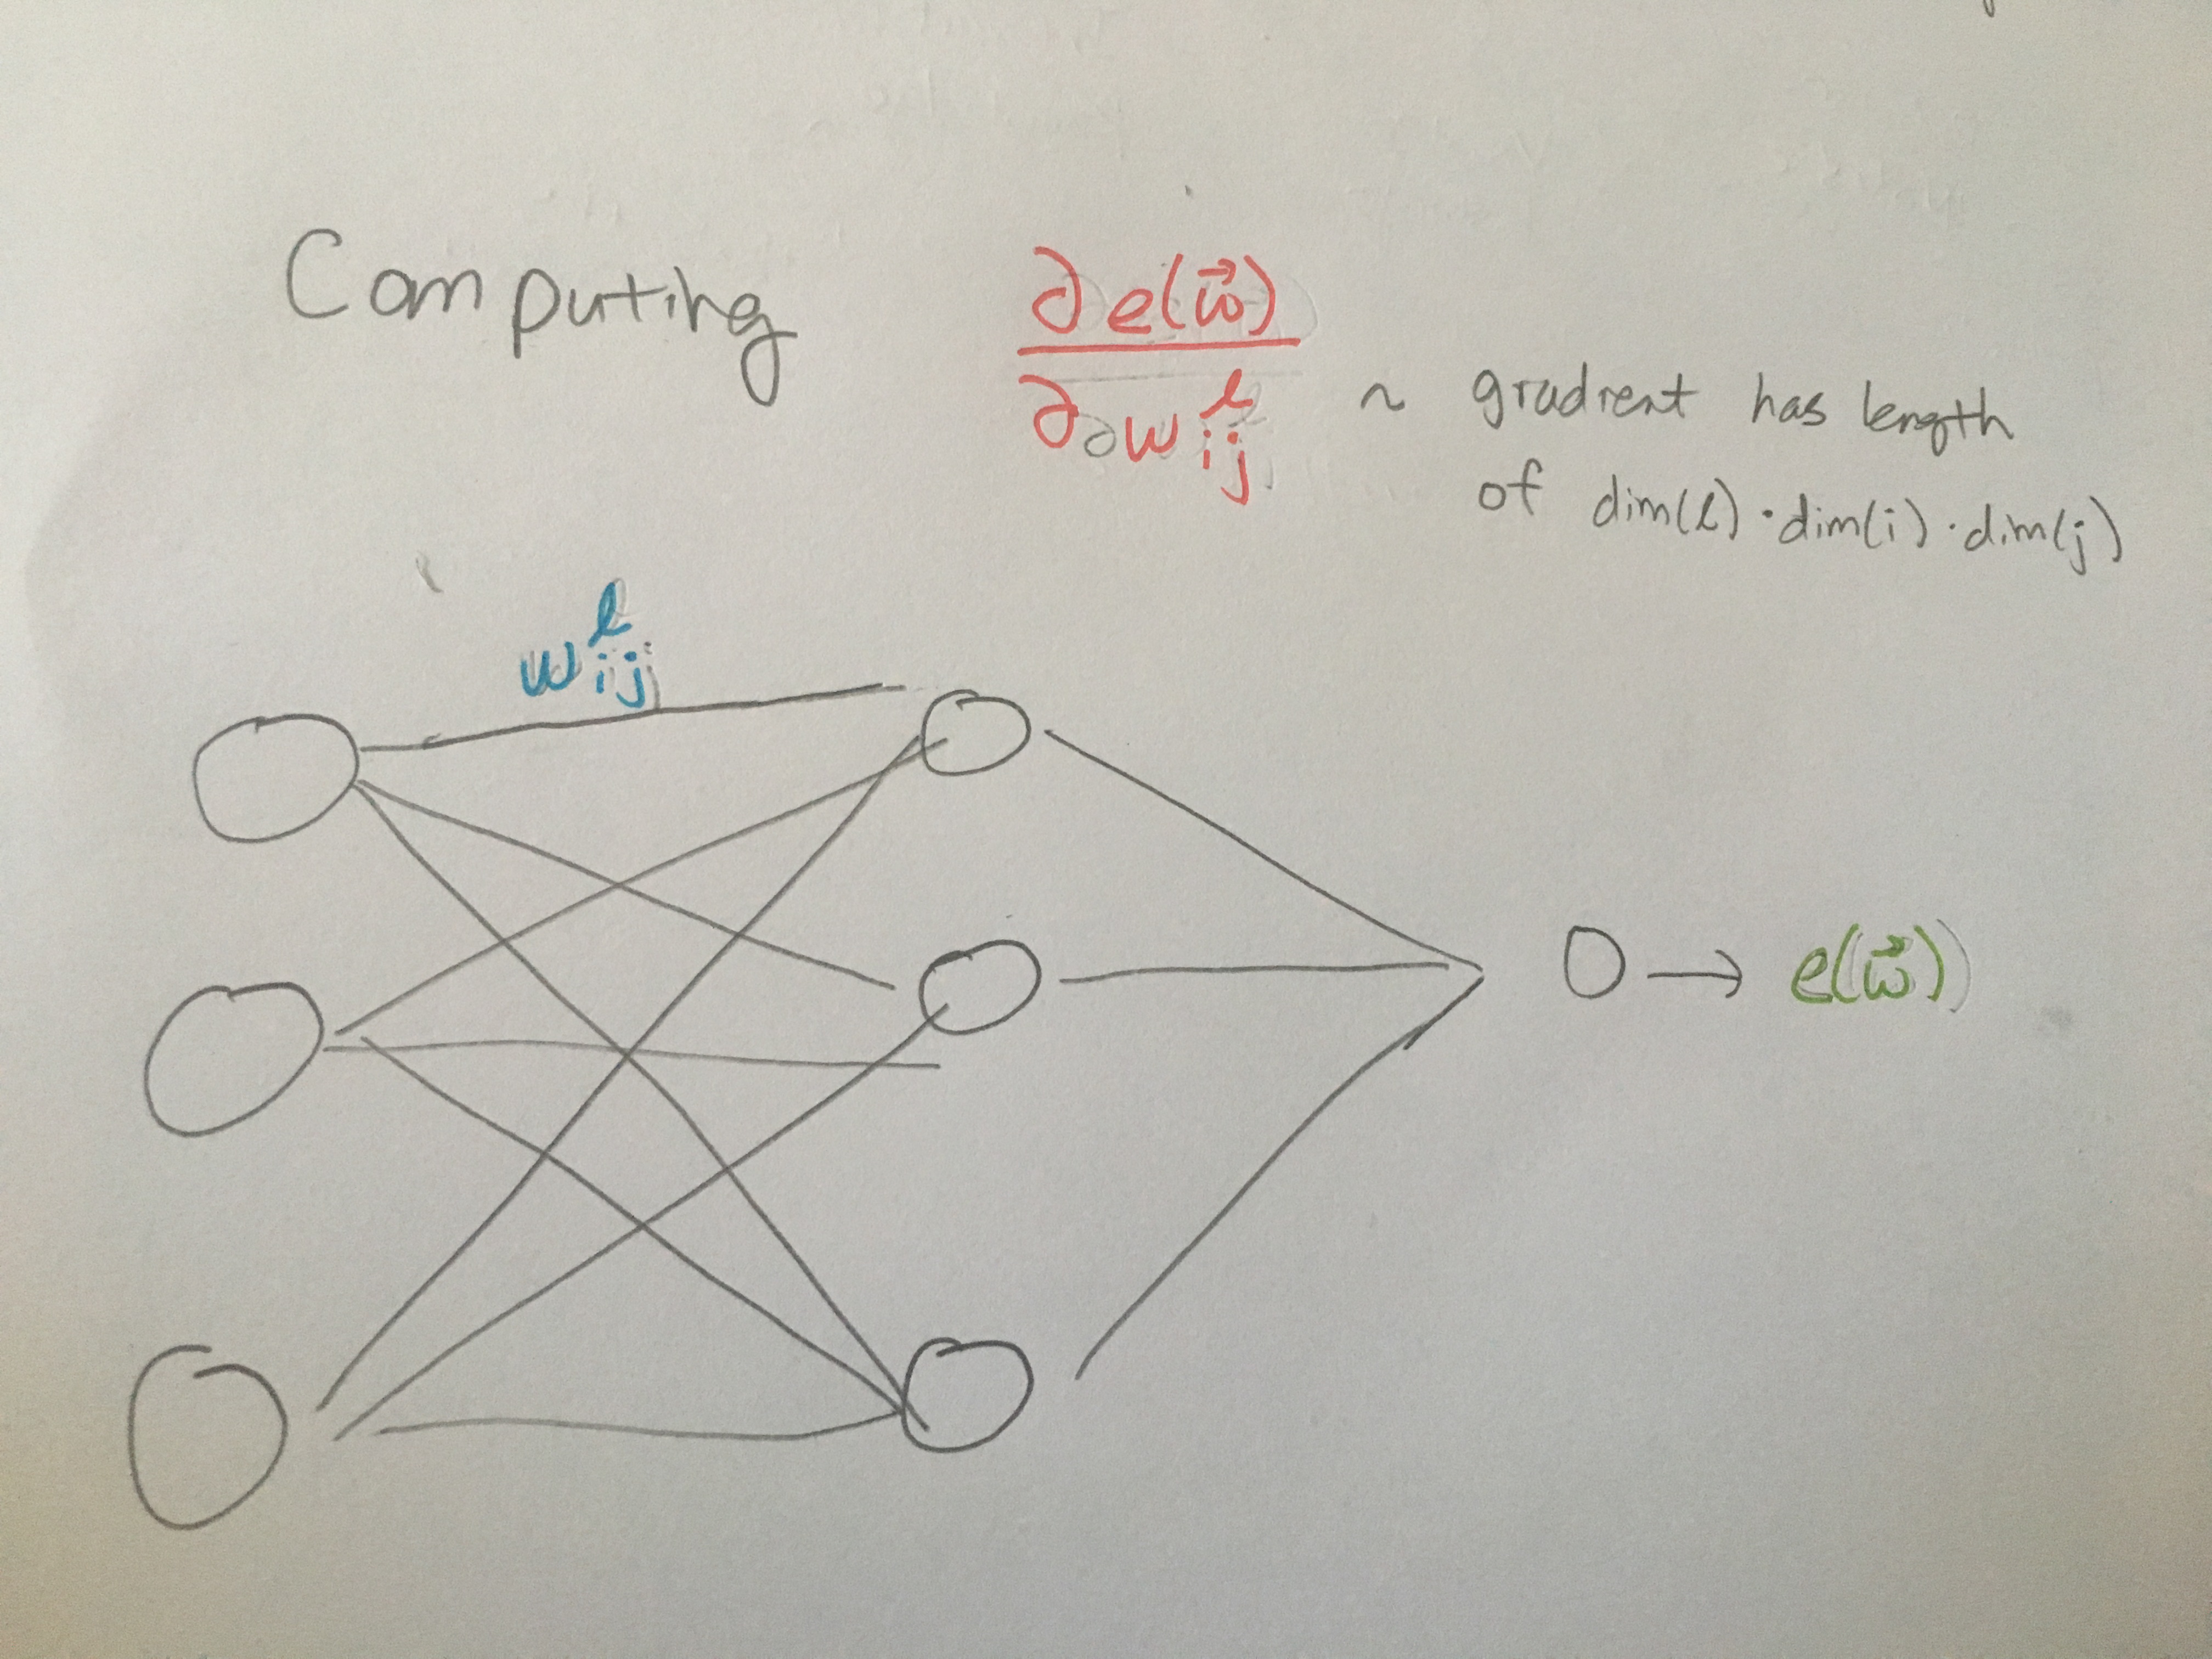 Computing ∂e(w⃗)
∂∂w^l_ij ~ gradient has length
of dim(l)·dim(i)·dim(j)
w^l_ij
→ e(w⃗)